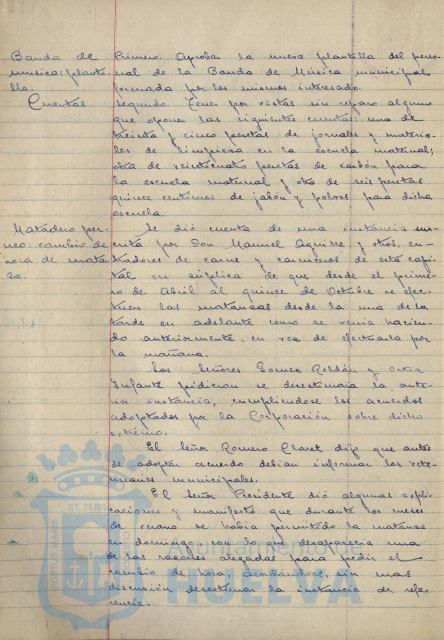 Banda de
música: planti-
lla.
Primero. Aprobar la nueva plantilla del perso-
nal de la Banda de Música municipal
formada por los mismos interesado.
Cuentas
Segundo. Tener por vistas sin reparo alguno
que oponer las siguientes cuentas: una de
treinta y cinco pesetas de jornales y materia-
les de limpieza en la escuela maternal;
otra de veinticuatro pesetas de carbón para
la escuela maternal y otra de seis pesetas
quince centimos de jabón y polvos para dicha
escuela.
Matadero per-
neo: cambio de
hora de matan-
za.
Se dió cuenta de una instancia sus-
crita por Don Manuel Aguirre y otros, en-
tradores de carne y carniceros de esta capi-
tal en súplica de que desde el prime-
ro de Abril al quince de Octubre se efec-
tuen las matanzas desde la una de la
tarde en adelante como se venia hacien-
do anteriormente, en vez de efectuarla por
la mañana.
Los Señores Gomez Roldán y Ortiz
Infante pidieron se desestimaria la ante-
rior instancia, cumpliendose los acuerdos
adoptados por la Corporación sobre dicho
extremo.
El Señor Romero Claret dijo que antes
de adoptar acuerdo debian informar los vete-
rinarios municipales.
El Señor Presidente dió algunas expli-
caciones y manifestó que durante los meses
de verano se habia permitido la matanza
en domingo, con lo que desaparecia una
de las razones alegadas para pedir el
cambio de hora, acordándose, sin mas
discusión desestimar la instancia de refe-
rencia.
HUELVA